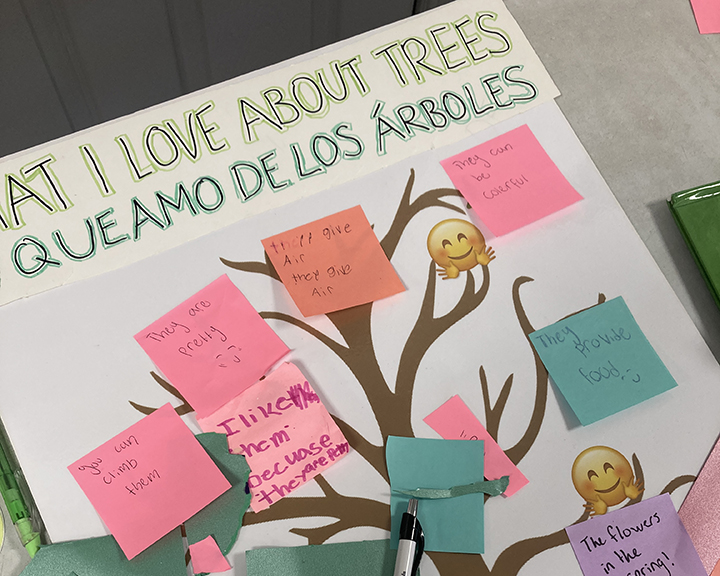 HAT I LOVE ABOUT TREES
QUEAMO DE LOS ÁRBOLES
They can
be
colorful
they give
Air
they give
Air
They are
pretty
They
provide
food
I like
them
becuase
They are
you can
climb
them
The flowers
in the
pring!